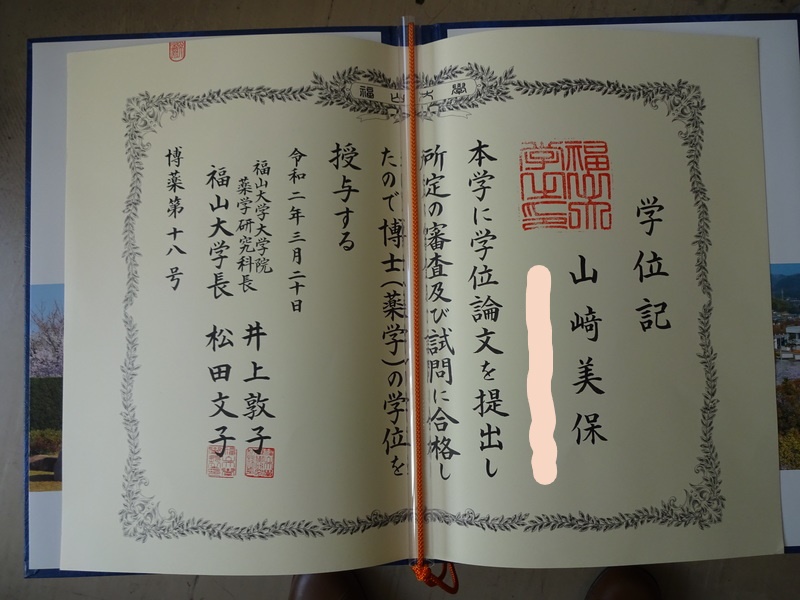 福山大學
学位記
山﨑美保
本学に学位論文を提出し
所定の審査及び試問に合格し
たので博士(薬学)の学位を
授与する
令和二年三月二十日
福山大学大学院
薬学研究科長 井上敦子
福山大学長 松田文子
博薬第十八号